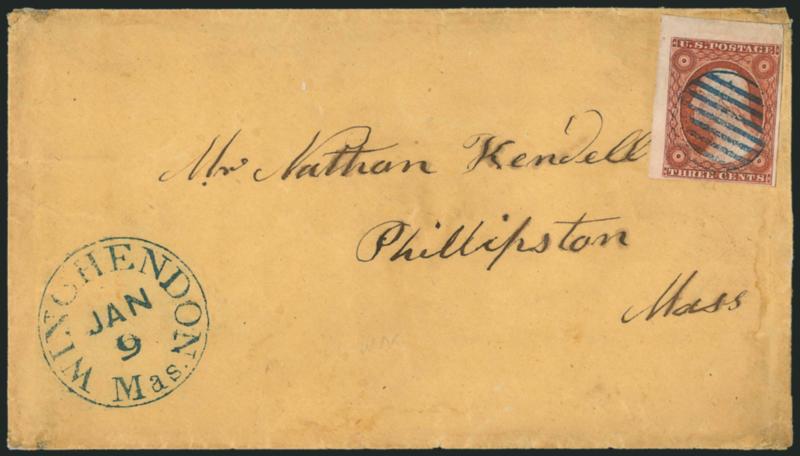 U.S. POSTAGE
THREE CENTS
Mr Nathan Kendell
Phillipston
Mass
WINCHENDON
JAN
9
Mas.